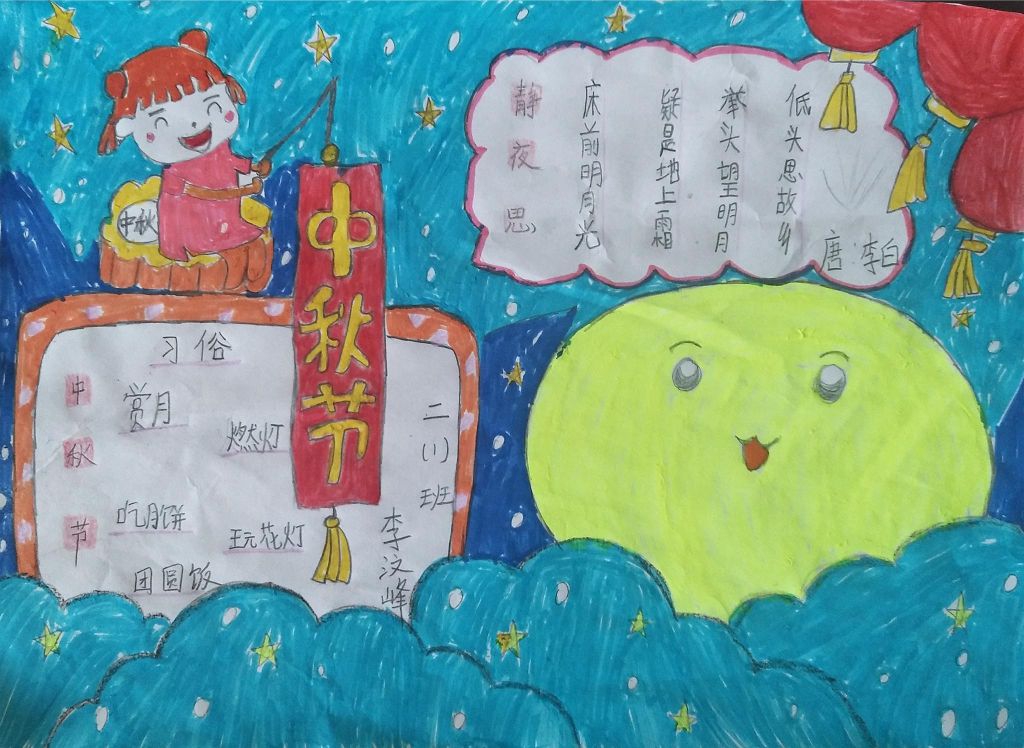 静夜思
床前明月光
疑是地上霜
举头望明月
低头思故乡
唐：李白
中秋
中秋节
习俗
中秋节
赏月
燃灯
吃月饼
玩花灯
团圆饭
二(1)班
李汶峰